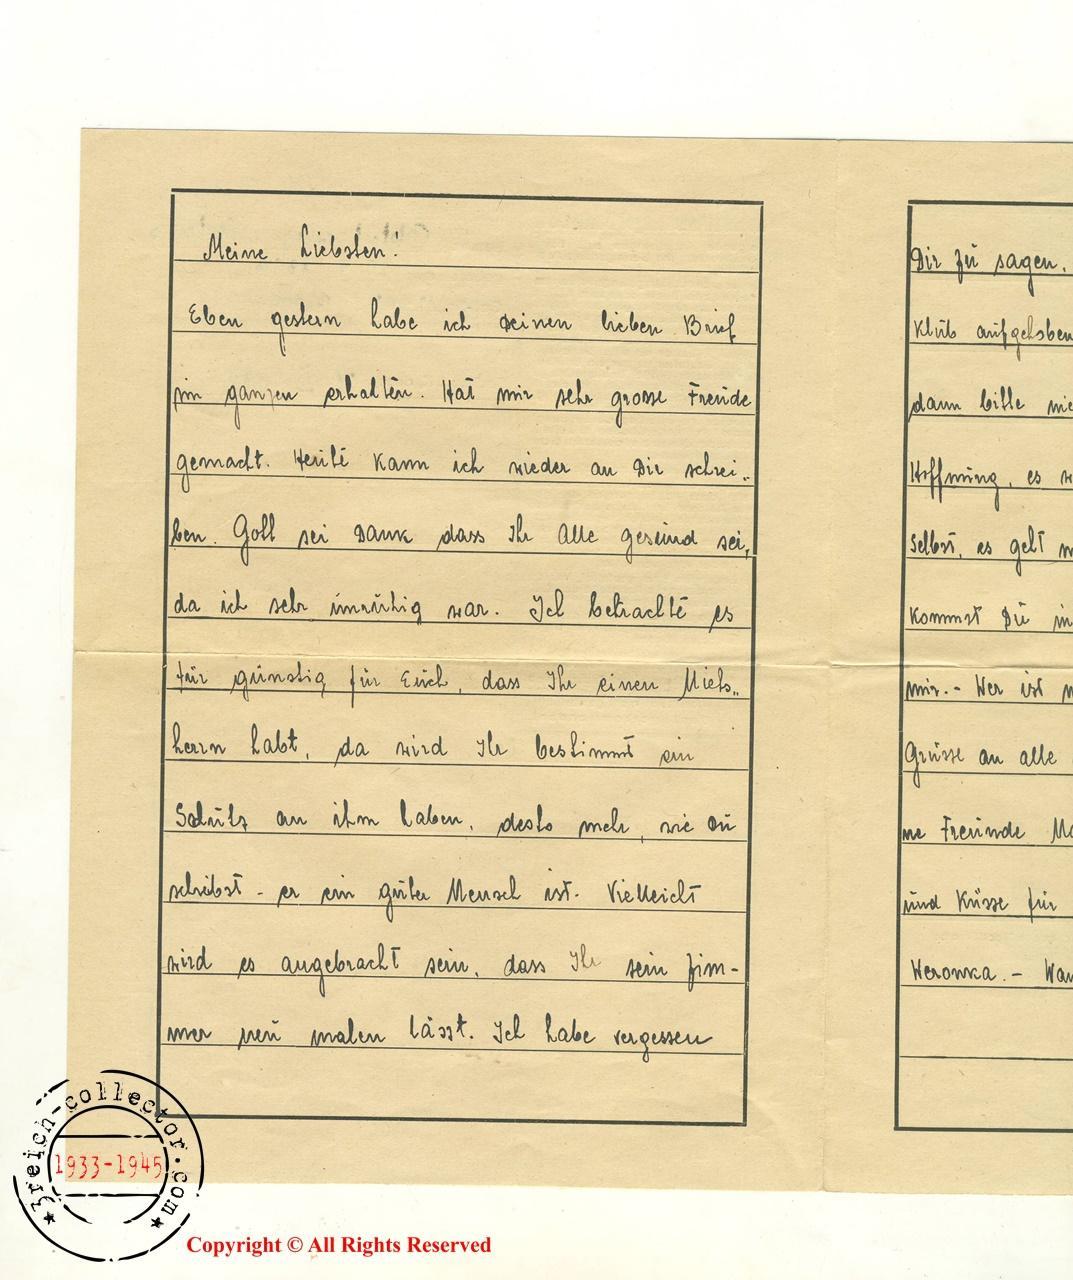 Meine Liebsten!
Eben gestern habe ich Deinen lieben Brief
im ganzen erhalten. Hat mir sehr grosse Freude
gemacht. Heute kann ich wieder an Dir schrei-
ben. Gott sei Dank dass Ihr Alle gesund sei,
da ich sehr unruhig war. Ich betrachte es
für günstig für Euch, dass Ihr einen Miets-
herrn habt, da wird Ihr bestimmt ein
Schutz an ihm haben, desto mehr, wie Du
schribst - er ein guter Mensch ist. Vielleicht
wird es angebracht sein, dass Ihr sein Zim-
mer neu malen lässt. Ich habe vergessen
Dir zu sagen.
Klub aufgehoben
dann bitte
Hoffnung, es
Selbst, es geht
kommst Du in
mir. - Wer ist
Grüsse an alle
ne Freunde
und Küsse für
Weronka. -
3reich-collector.com
1933-1945
Copyright © All Rights Reserved